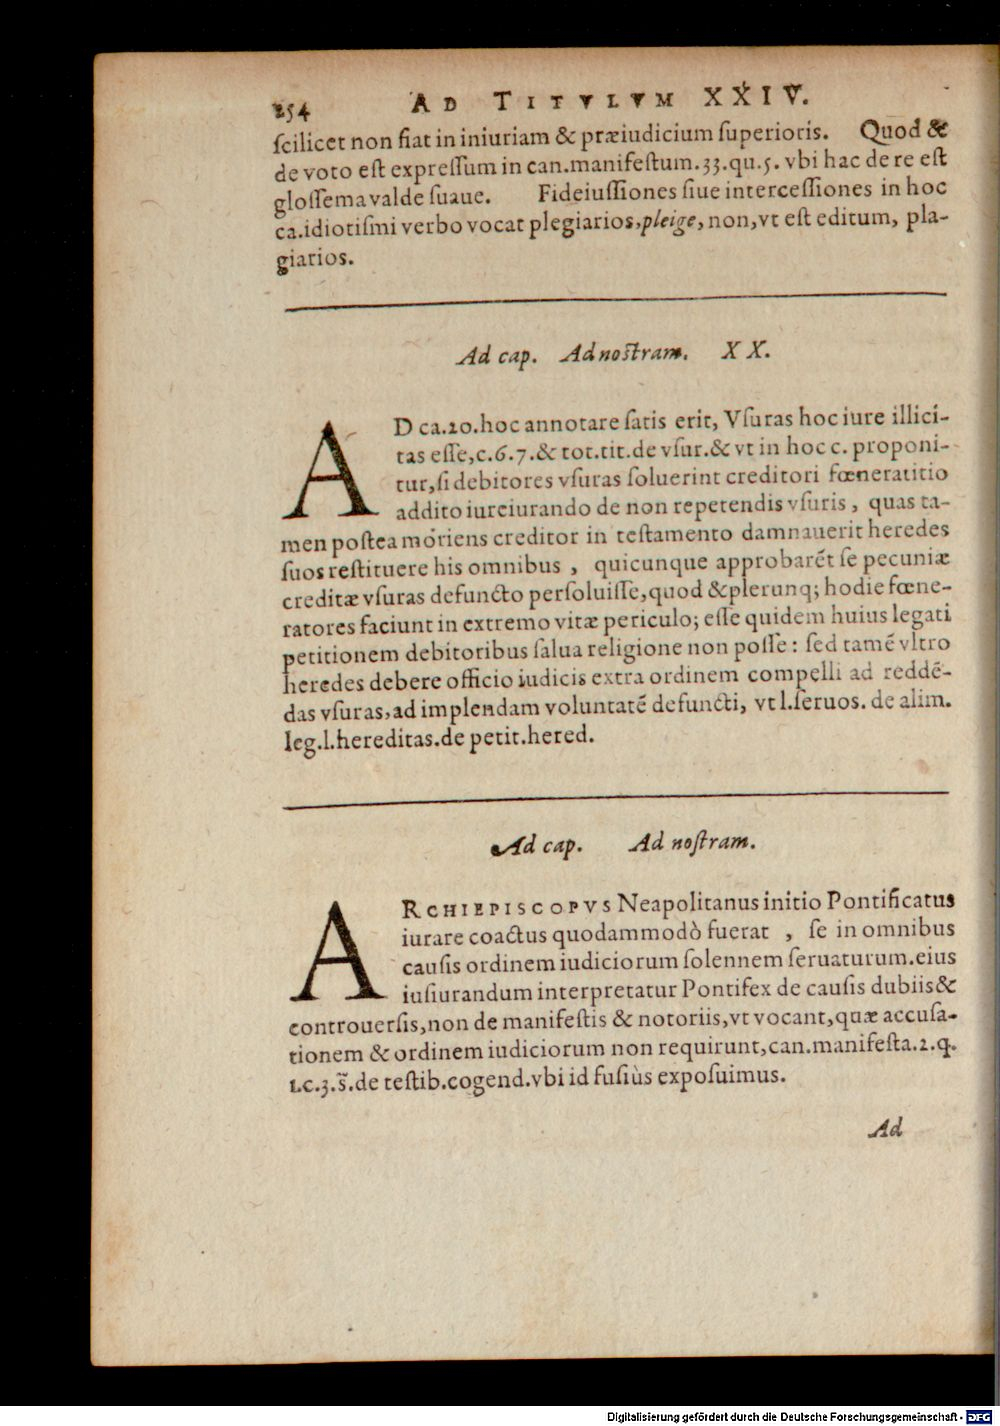 254 AD TITVLVM XXIV.
ſcilicet non fiat in iniuriam & præiudicium ſuperioris. Quod &
de voto eſt expreſſum in can.manifeſtum.33.qu.5. vbi hac de re eſt
gloſſema valde ſuaue. Fideiuſſiones ſiue interceſſiones in hoc
ca.idiotiſmi verbo vocat plegiarios,pleige, non,vt eſt editum, pla-
giarios.
Ad cap. Ad noſtram. XX.
AD ca.20.hoc annotare ſatis erit, Vſuras hoc iure illici-
tas eſſe,c.6.7.& tot.tit.de vſur.& vt in hoc c. proponi-
tur,ſi debitores vſuras ſoluerint creditori fœneratitio
addito iureiurando de non repetendis vſuris, quas ta-
men poſtea moriens creditor in teſtamento damnauerit heredes
ſuos reſtituere his omnibus , quicunque approbarẽt ſe pecuniæ
creditæ vſuras defuncto perſoluiſſe,quod &plerunq; hodie fœne-
ratores faciunt in extremo vitæ periculo; eſſe quidem huius legati
petitionem debitoribus ſalua religione non poſſe: ſed tamẽ vltro
heredes debere officio iudicis extra ordinem compelli ad reddẽ-
das vſuras,ad implendam voluntatẽ defuncti, vt l.ſeruos. de alim.
leg.l.hereditas.de petit.hered.
Ad cap. Ad noſtram.
ARCHIEPISCOPVS Neapolitanus initio Pontificatus
iurare coactus quodammodò fuerat , ſe in omnibus
cauſis ordinem iudiciorum ſolennem ſeruaturum.eius
iuſiurandum interpretatur Pontifex de cauſis dubiis&
controuerſis,non de manifeſtis & notoriis,vt vocant,quæ accuſa-
tionem & ordinem iudiciorum non requirunt,can.manifeſta.2.q.
1.c.3.s̃.de teſtib.cogend.vbi id fuſiùs expoſuimus.
Ad
Digitalisierung gefördert durch die Deutsche Forschungsgemeinschaft - DFG